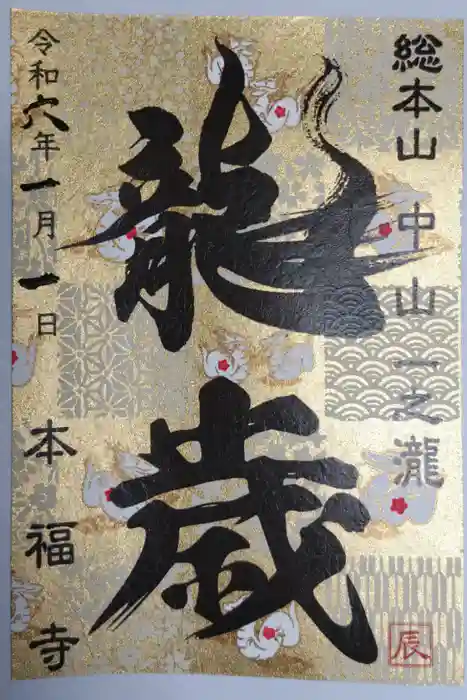 総本山 中山一之瀧
龍歳
令和六年一月一日
本福寺
辰